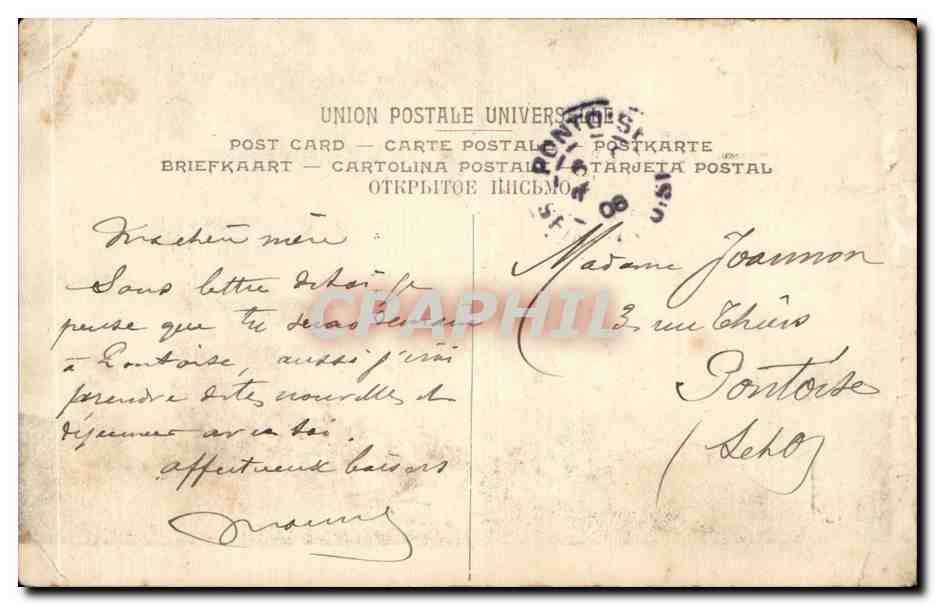 UNION POSTALE UNIVERSELLE
POST CARD — CARTE POSTALE — POSTKARTE
BRIEFKAART — CARTOLINA POSTALE — TARJETA POSTAL
ОТКРЫТОЕ ПИСЬМО
PONTOISE
6
08
Ma chère mère
Sans lettre de toi je
pense que tu seras demain
à Pontoise, aussi j'irai
prendre de tes nouvelles et
déjeuner avec toi.
affectueux baisers
Madame Joannon
3 rue Thiers
Pontoise
(S et O)
CPAPHIL